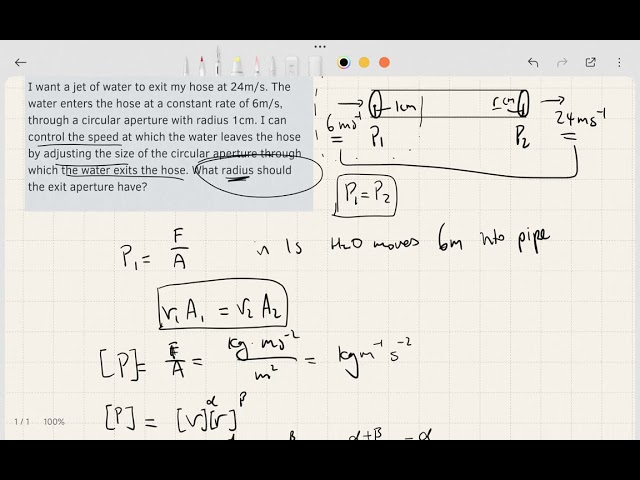 I want a jet of water to exit my hose at 24m/s. The
water enters the hose at a constant rate of 6m/s,
through a circular aperture with radius 1cm. I can
control the speed at which the water leaves the hose
by adjusting the size of the circular aperture through
which the water exits the hose. What radius should
the exit aperture have?
1cm rcm
6ms⁻¹ 24ms⁻¹
P₁ P₂
P₁=P₂
P₁ = F/A
1s H₂O moves 6m into pipe
v₁A₁ = v₂A₂
[P]= F/A = kg·ms⁻²/m² = kgm⁻¹s⁻²
[P] = [v]^α[r]^β
α+β -α
1 / 1 100%